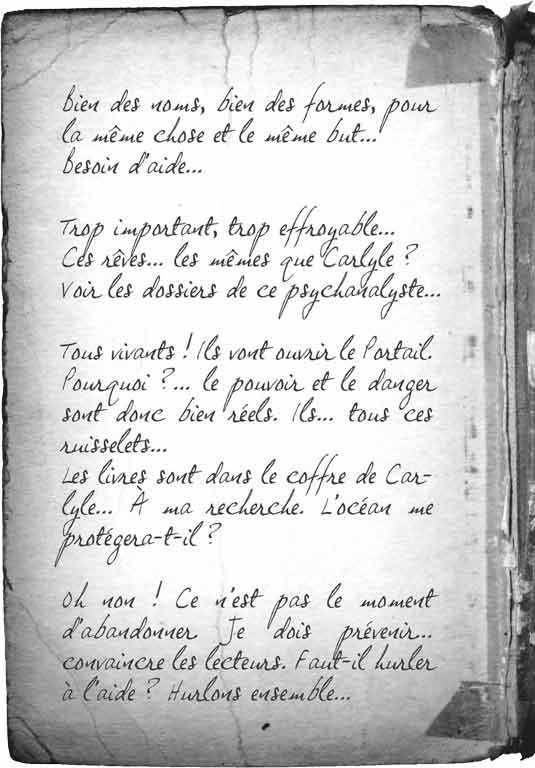 Bien des noms, bien des formes, pour
la même chose et le même but...
Besoin d'aide...
Trop important, trop effroyable...
Ces rêves... les mêmes que Carlyle ?
Voir les dossiers de ce psychanalyste...
Tous vivants ! Ils vont ouvrir le Portail.
Pourquoi ?... le pouvoir et le danger
sont donc bien réels. Ils... tous ces
ruisselets...
Les livres sont dans le coffre de Car-
lyle... À ma recherche. L'océan me
protégera-t-il ?
Oh non ! Ce n'est pas le moment
d'abandonner Je dois prévenir...
convaincre les lecteurs. Faut-il hurler
à l'aide ? Hurlons ensemble...